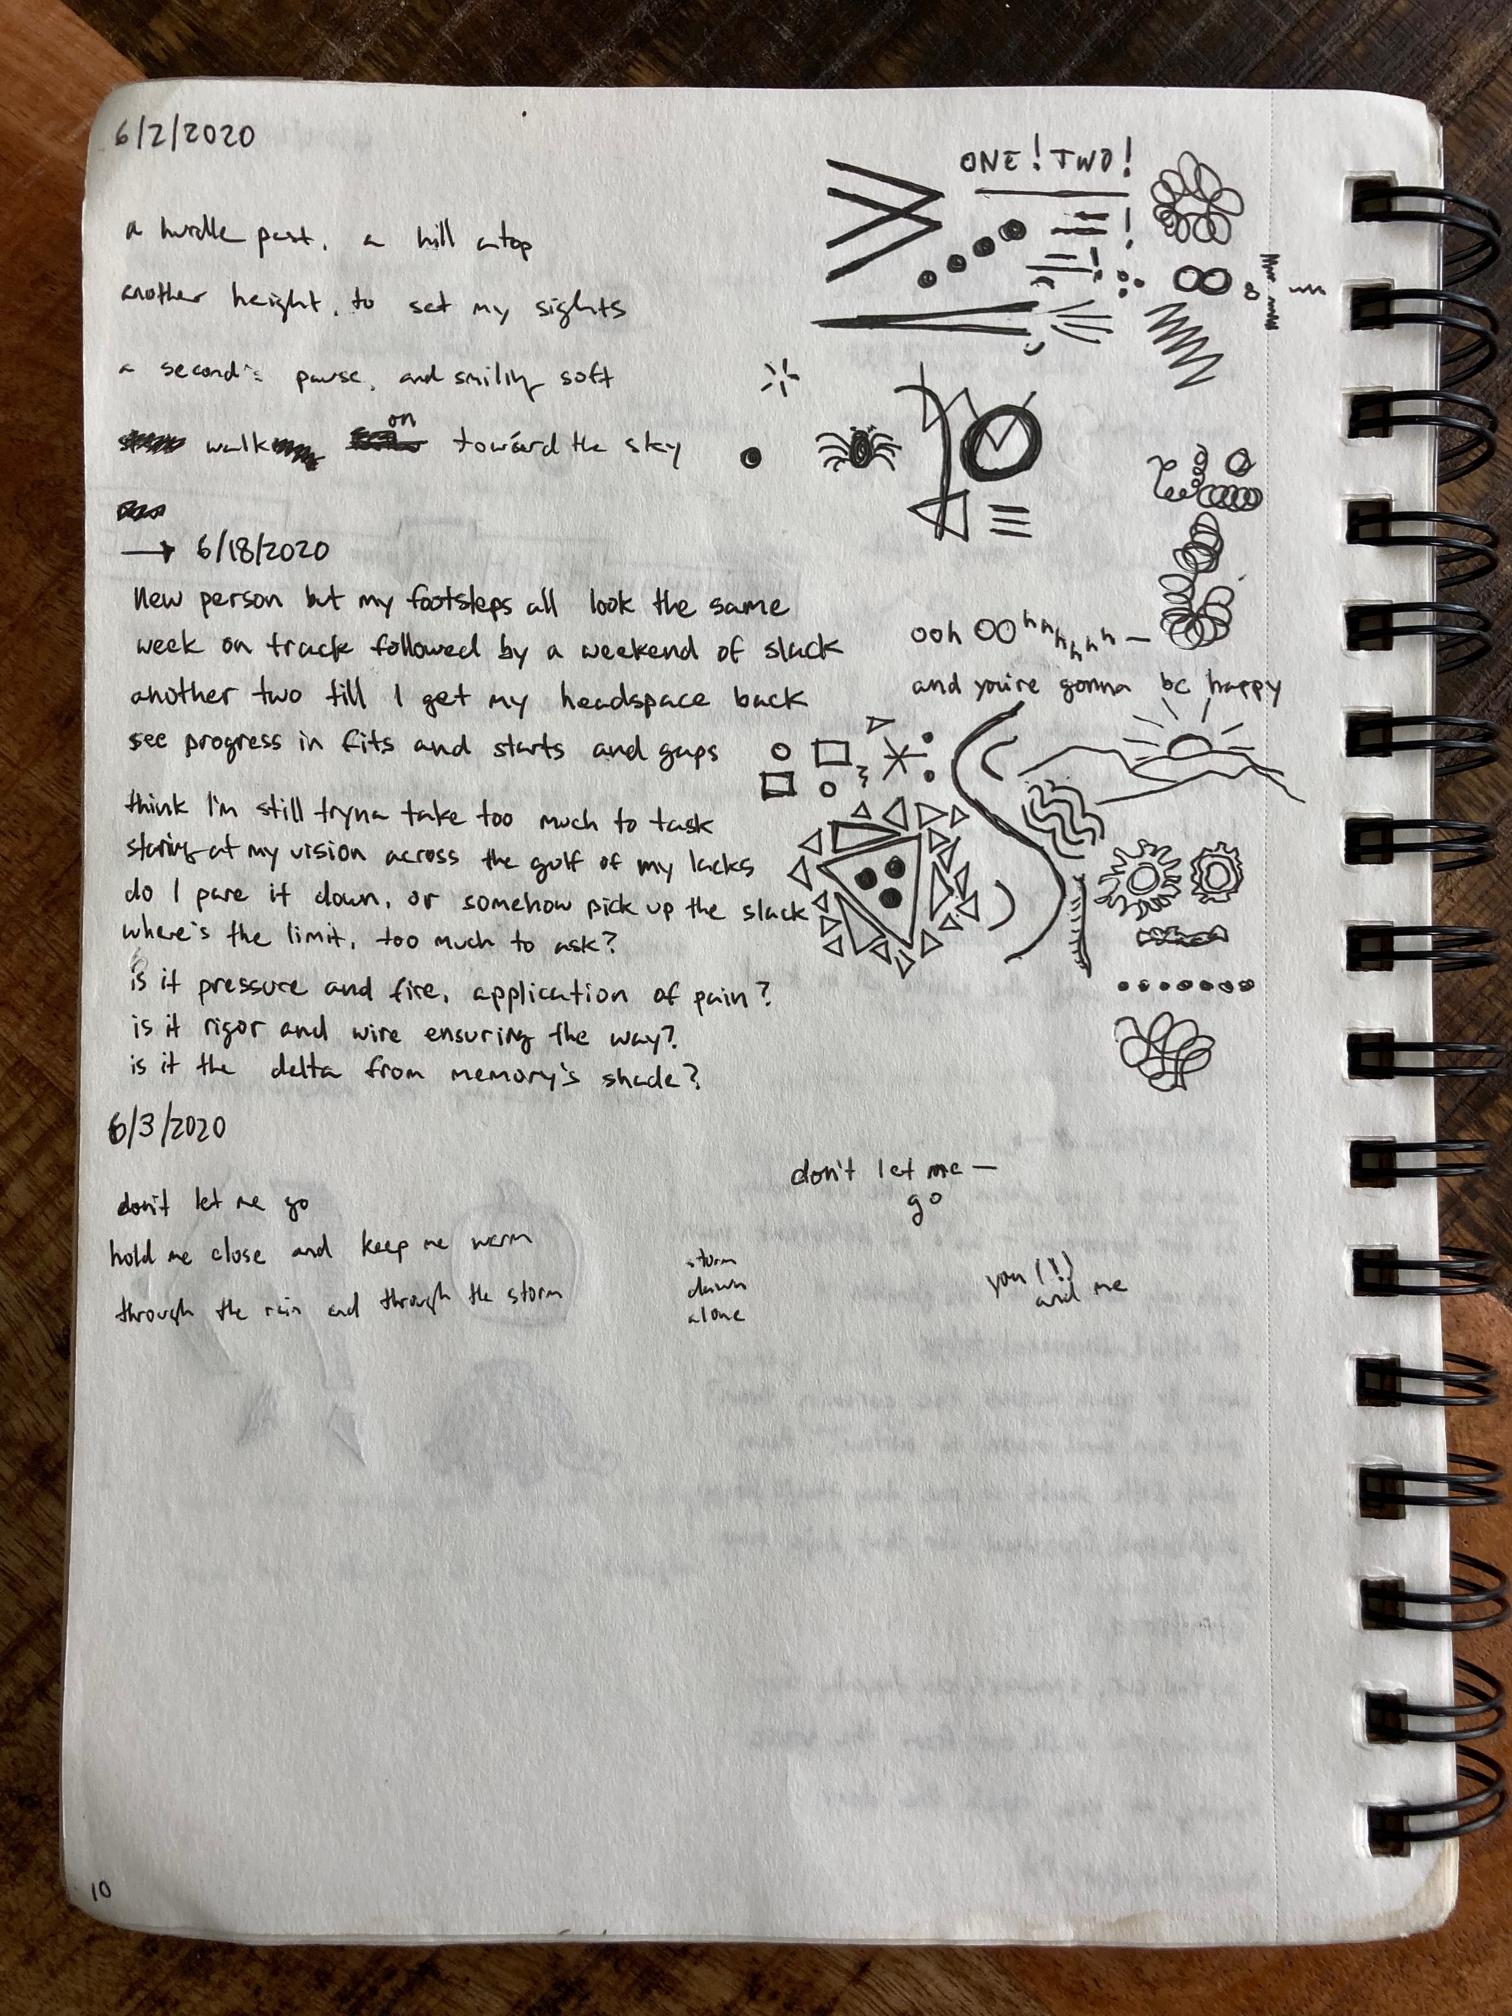 6/2/2020
a hurdle past, a hill atop
another height, to set my sights
a second's pause, and smiling soft
walk on toward the sky
→ 6/18/2020
New person but my footsteps all look the same
week on track followed by a weekend of slack
another two till I get my headspace back
see progress in fits and starts and gaps
think I'm still tryna take too much to task
staring at my vision across the gulf of my lacks
do I pare it down, or somehow pick up the slack
where's the limit, too much to ask?
is it pressure and fire, application of pain?
is it rigor and wire ensuring the way?
is it the delta from memory's shade?
6/3/2020
don't let me go
hold me close and keep me warm
through the rain and through the storm
storm
dawn
alone
don't let me —
go
you (!)
and me
ONE! TWO!
ooh OOhhhhhh —
and you're gonna be happy
10